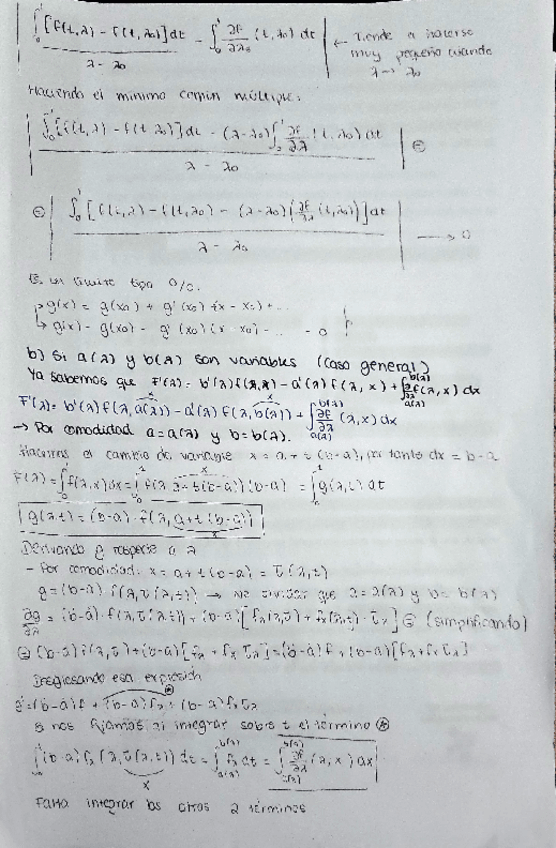 | ∫₀¹ [f(t,λ) - f(t,λ₀)] dt / λ - λ₀ - ∫₀¹ ∂f/∂λ (t,λ₀) dt | ← Tiende a hacerse muy pequeño cuando λ → λ₀
Haciendo el mínimo común múltiplo:
| ∫₀¹ [f(t,λ) - f(t,λ₀)] dt - (λ-λ₀) ∫₀¹ ∂f/∂λ (t,λ₀) dt / λ - λ₀ | =
= | ∫₀¹ [f(t,λ) - f(t,λ₀) - (λ-λ₀) (∂f/∂λ (t,λ₀))] dt / λ - λ₀ | → 0
Es un límite tipo 0/0.
g(x) = g(x₀) + g'(x₀) (x - x₀) + ...
g(x) - g(x₀) - g'(x₀) (x - x₀) - ... → 0
b) Si a(λ) y b(λ) son variables (caso general)
Ya sabemos que F'(λ) = b'(λ) f(λ,x) - a'(λ) f(λ,x) + ∫ₐ₍λ₎ᵇ⁽λ⁾ ∂f/∂λ (λ,x) dx
F'(λ) = b'(λ) f(λ,a(λ)) - a'(λ) f(λ,b(λ)) + ∫ₐ₍λ₎ᵇ⁽λ⁾ ∂f/∂λ (λ,x) dx
→ Por comodidad a=a(λ) y b=b(λ).
Hacemos el cambio de variable x = a + t(b-a), por tanto dx = b-a
F(λ) = ∫ f(λ,x) dx = ∫₀¹ f(λ, a+t(b-a)) (b-a) = ∫₀¹ g(λ,t) dt
g(λ,t) = (b-a) · f(λ, a+t(b-a))
x
Derivando g respecto a λ
- Por comodidad: x = a + t(b-a) = τ(λ,t)
g = (b-a) f(λ,τ(λ,t)) → No olvidar que a=a(λ) y b=b(λ)
∂g/∂λ = (b'-a') · f(λ,τ(λ,t)) + (b-a) [fλ(λ,τ) + fx(λ,τ) · τλ] = (simplificando)
= (b'-a') f(λ,τ) + (b-a) [fλ + fx τλ] = (b'-a') f + (b-a) [fλ + fx τλ]
esa expresión
g' = (b'-a') f + (b-a) fλ + (b-a) fx τλ
Si nos fijamos al integrar sobre t el término ⊛
∫₀¹ (b-a) fλ (λ,τ(λ,t)) dt = ∫ₐ₍λ₎ᵇ⁽λ⁾ fλ dt = ∫ₐ₍λ₎ᵇ⁽λ⁾ ∂f/∂λ (λ,x) dx
x
Falta integrar los otros 2 términos